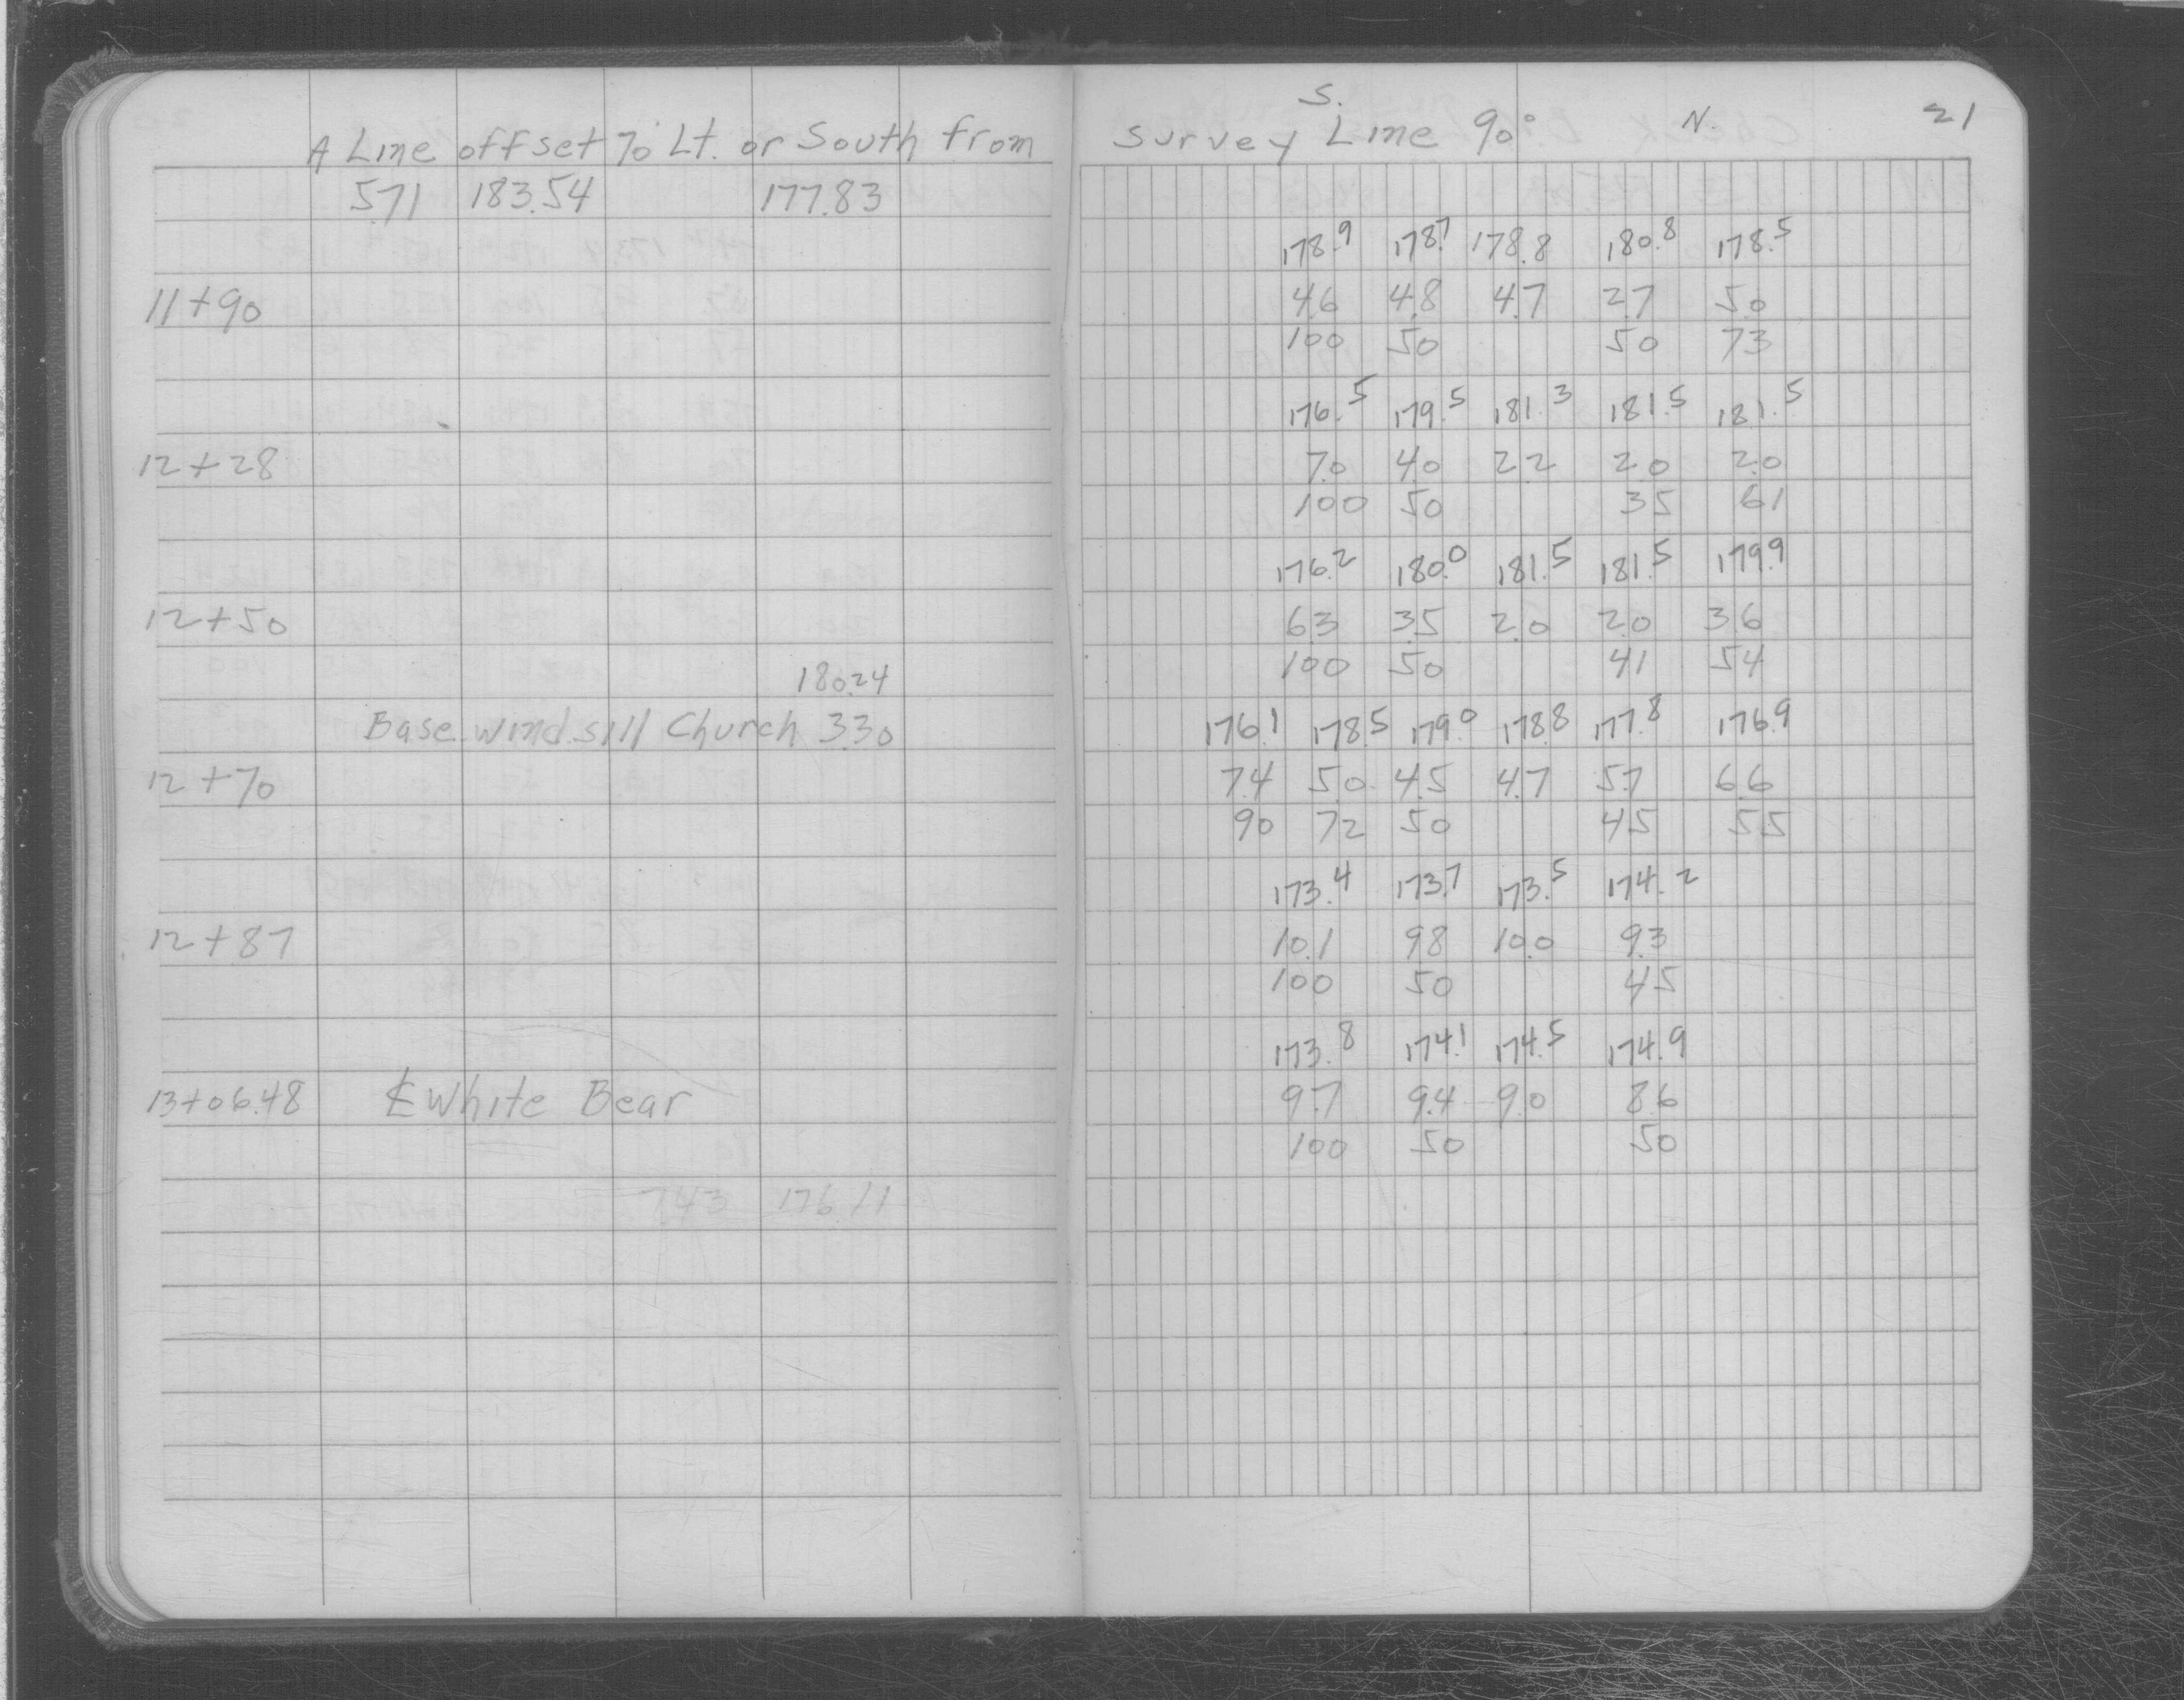 21
S. N.
A Line offset 70' Lt. or South from Survey Line 90°
5.71 183.54 177.83
178.9 178.7 178.8 180.8 178.5
11+90 4.6 4.8 4.7 2.7 5.0
100 50 50 73
176.5 179.5 181.3 181.5 181.5
12+28 7.0 4.0 2.2 2.0 2.0
100 50 35 61
176.2 180.0 181.5 181.5 179.9
12+50 6.3 3.5 2.0 2.0 3.6
100 50 41 54
180.24
Base wind. sill Church 3.30
176.1 178.5 179.0 178.8 177.8 176.9
12+70 7.4 5.0 4.5 4.7 5.7 6.6
90 72 50 45 55
173.4 173.7 173.5 174.2
12+87 10.1 9.8 10.0 9.3
100 50 45
173.8 174.1 174.5 174.9
13+06.48 ℄ White Bear 9.7 9.4 9.0 8.6
100 50 50
7.43 176.11